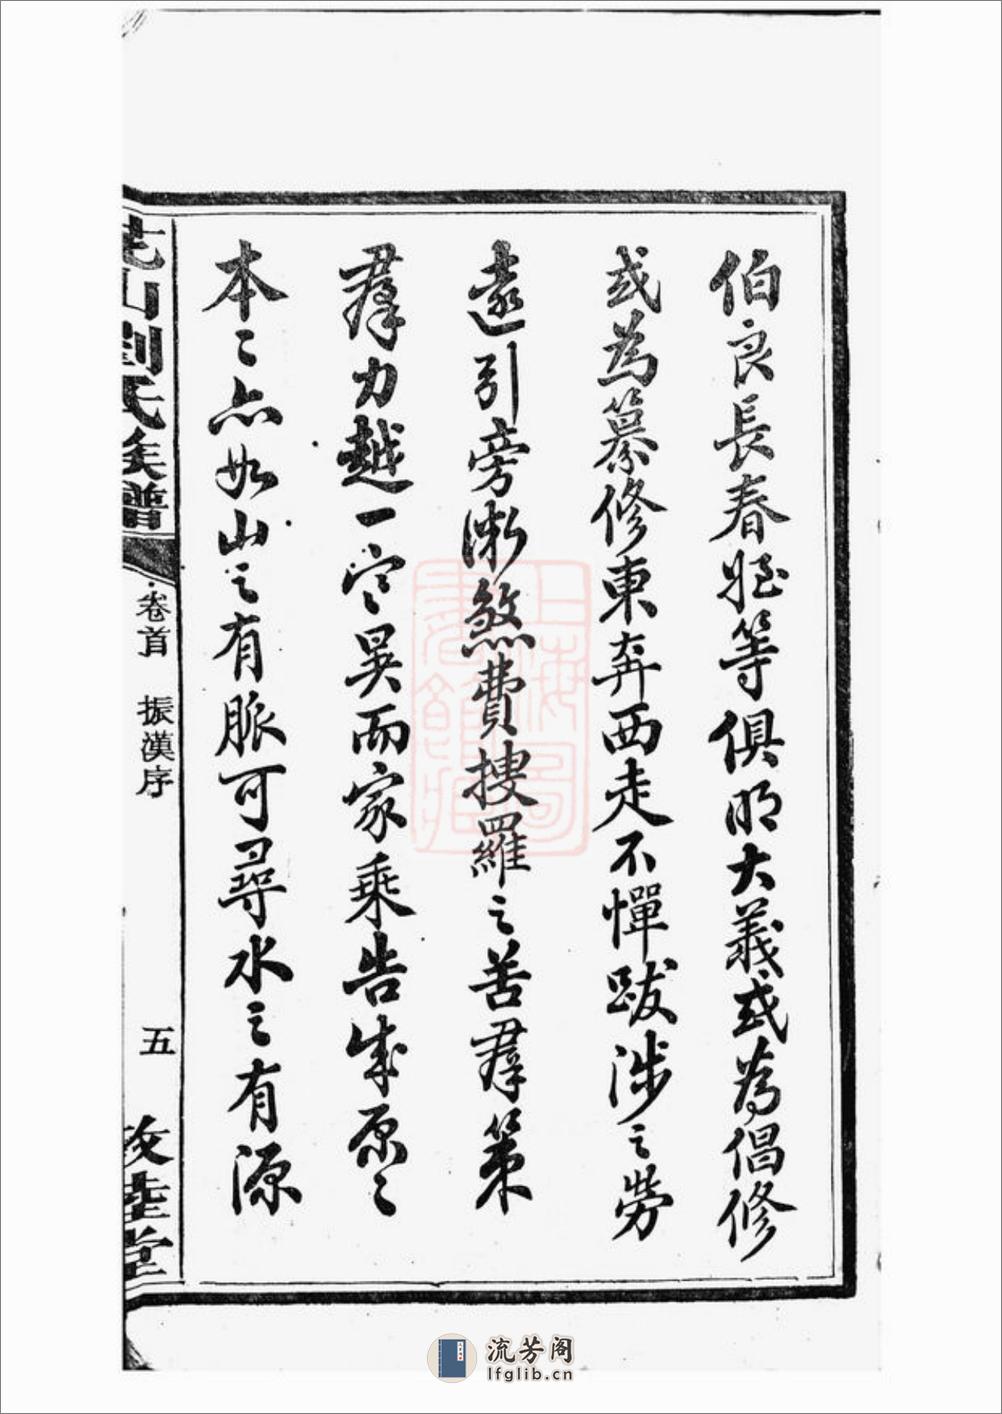 伯良長春姪等俱明大義或為倡修
或為纂修東奔西走不憚跋涉之勞
遠引旁漸煞費搜羅之苦羣策
羣力越一寒暑而家乘告成原〻
本〻亦如山之有脈可尋水之有源
山劉氏族譜
卷首 振漢序
五
敦睦堂
上海圖書館藏
流芳阁
lfglib.cn